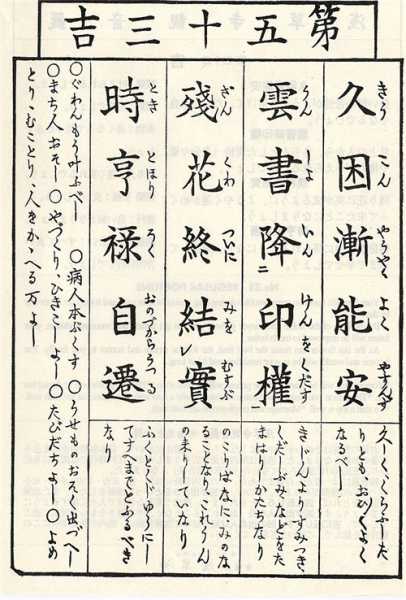 第五十三吉
久困漸能安
きう こん やうやく よく やすんず
久しくくらふた
りともおひ〱よく
なるべし
雲書降二印權
うん しよ いん けんをくだす
きじんよりすみつき、
くだしぶみ、などをた
まはりしかたちなり
殘花終結レ實
ざん くわ ついに みを むすぶ
のこりばなにみのな
ることなり、これうん
の来りしていなり
時亨禄自遷
とき とほり ろく おのづからうつる
ふくとくじゆうにし
てすへまでとふるべき
なり
〇ぐわんもう叶ふべし 〇病人本ぷくす 〇うせものおそく出づべし
〇まち人おそし 〇やづくり、ひきこしよし 〇たびだちよし 〇よめ
とり、むことり、人をかゝへる万よし